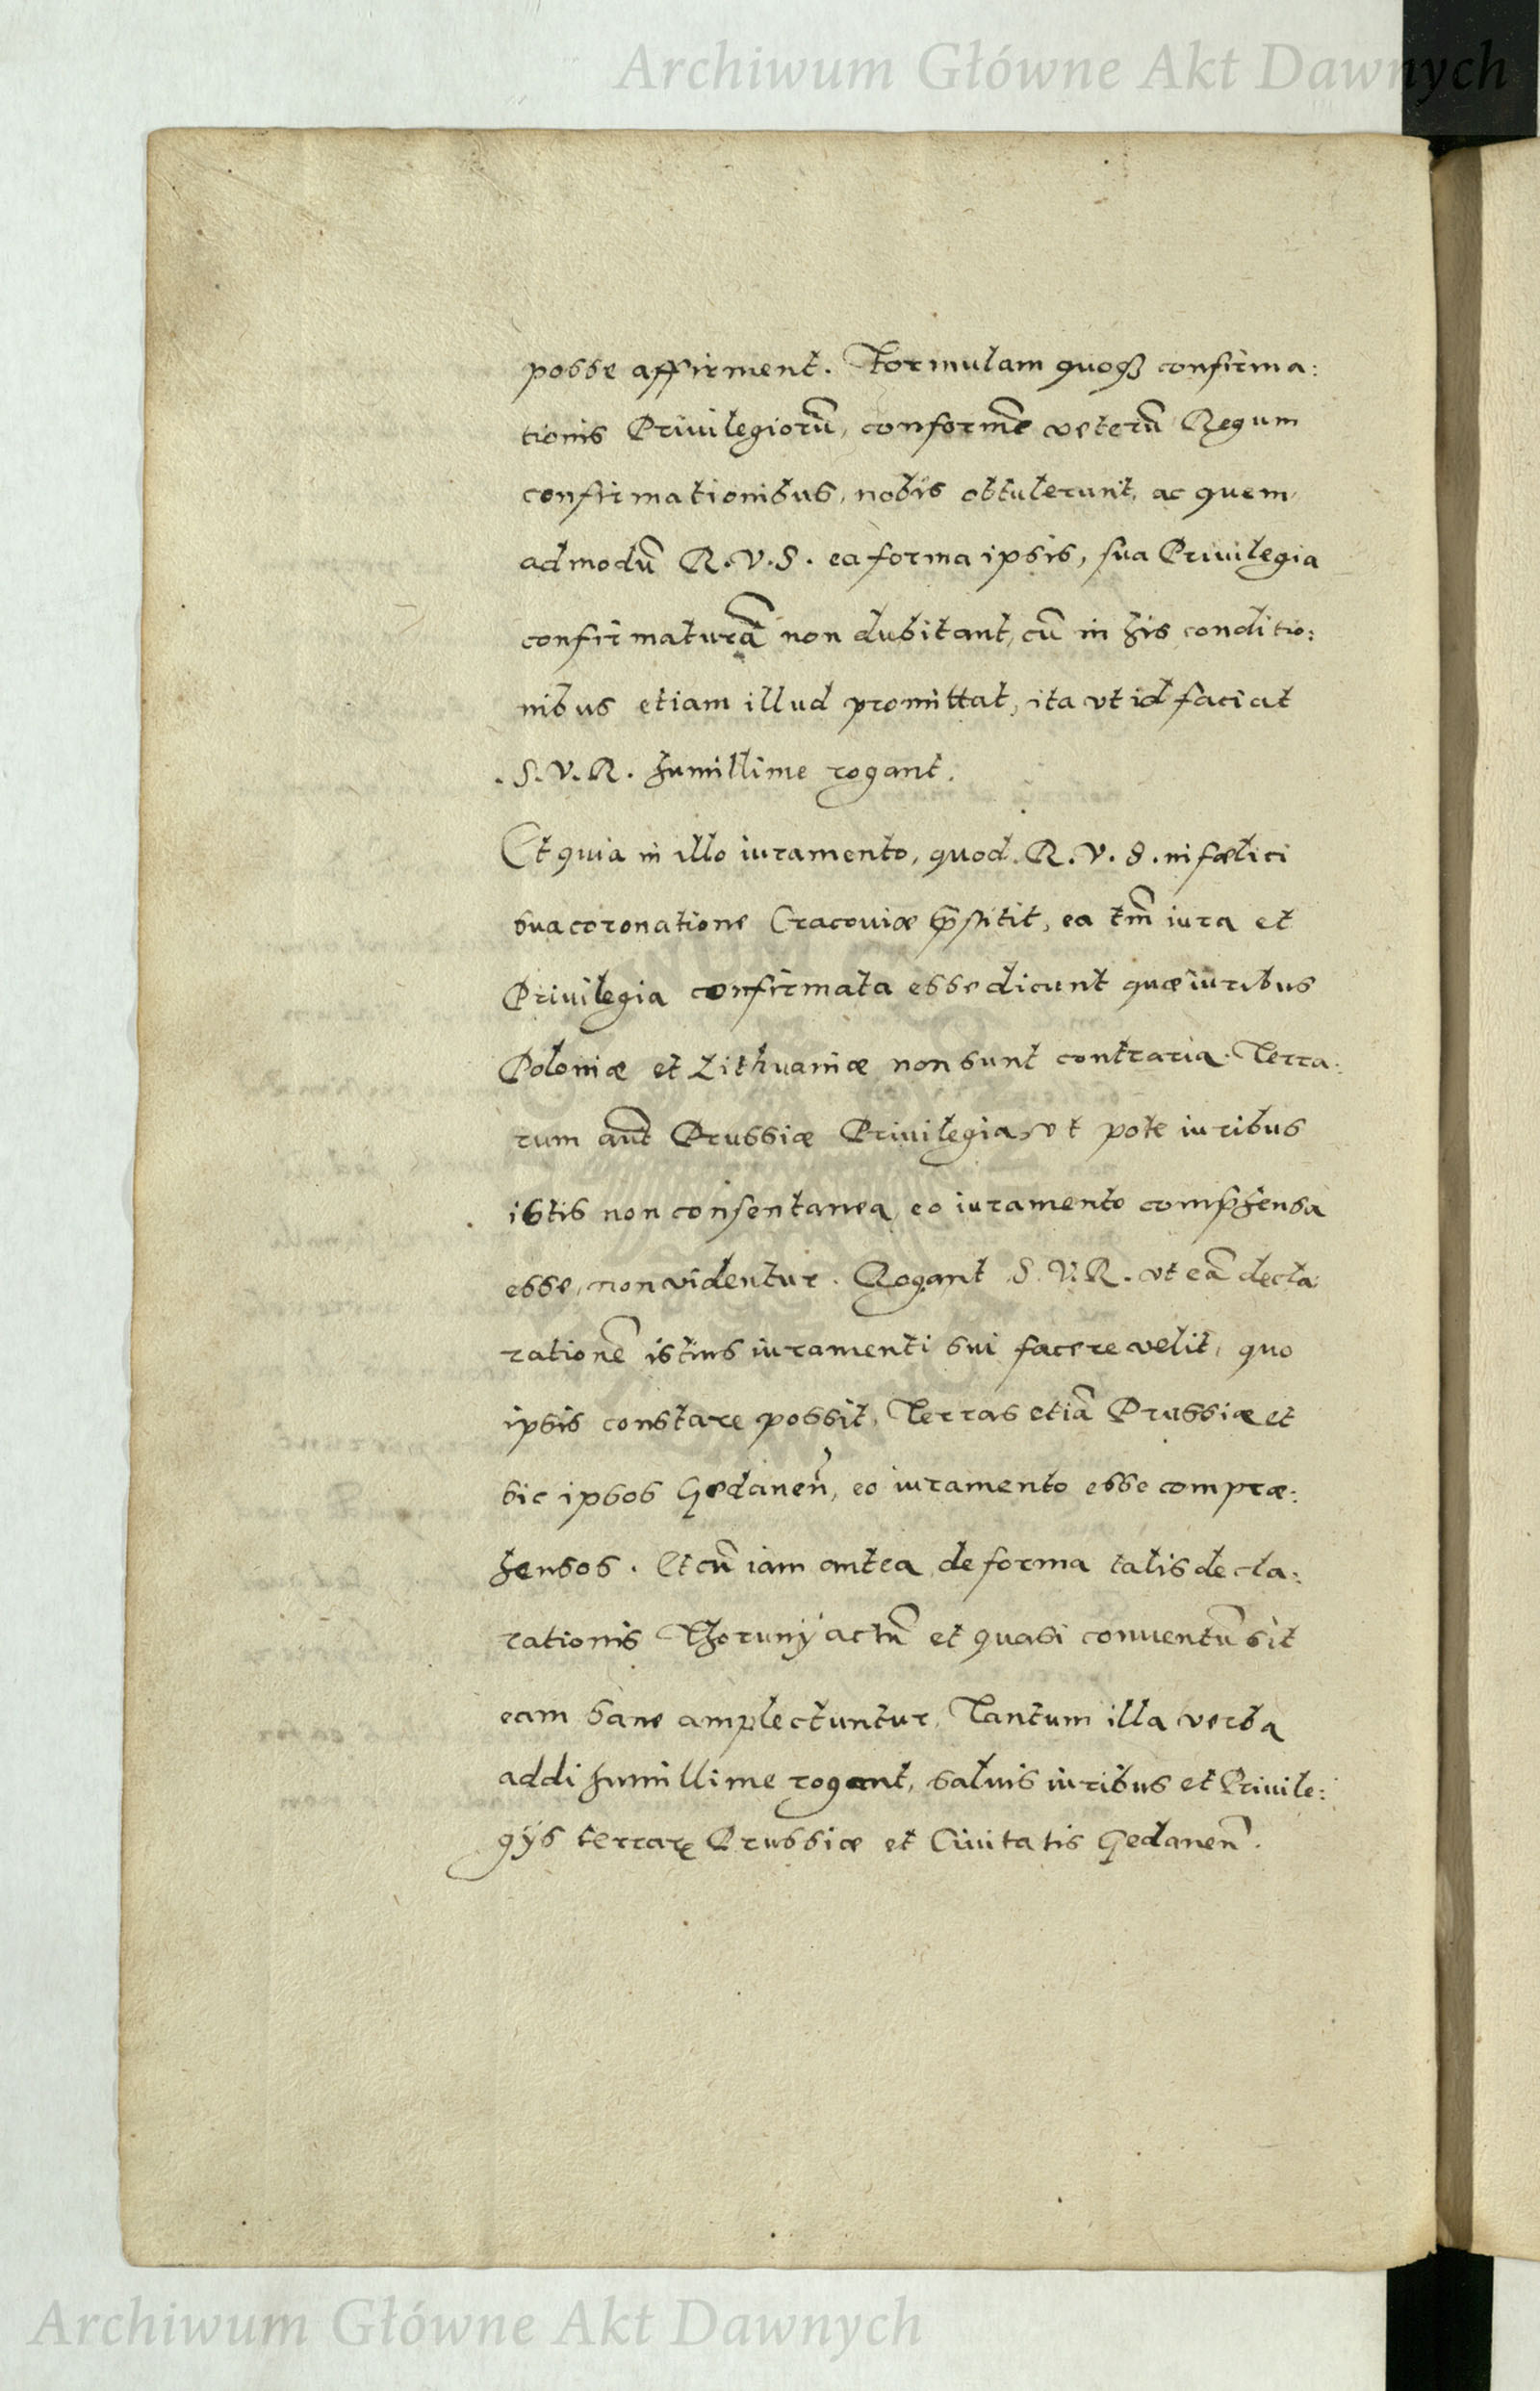 Archiwum Główne Akt Dawnych
posse affirment. Formulam quoqꝫ confirma:
tionis Priuilegiorũ, conformẽ veterũ Regum
confirmationibus, nobis obtulerunt, ac quem
admodũ R.V.S. ea forma ipsis, sua Priuilegia
confirmaturã non dubitant, cũ in his conditio:
nibus etiam illud promittat, ita vt id faciat
S.V.R. humillime rogant.
Et quia in illo iuramento, quod R.V.S. in fœlici
sua coronatione Cracouiæ p̃stitit, ea tm̃ iura et
Priuilegia confirmata esse dicunt quæ iuribus
Poloniæ et Lithuaniæ non sunt contraria. Terra:
rum aũt Prussiæ Priuilegia, vt pote iuribus
istis non consentanea, eo iuramento comp̃hensa
esse, non videntur. Rogant S.V.R. vt eã decla:
rationẽ istius iuramenti sui facere velit, quo
ipsis constare possit, Terras etiã Prussiæ et
sic ipsos Gedaneñ, eo iuramento esse compræ:
hensos. Et cũ iam antea de forma talis decla:
rationis Thorunÿ actũ et quasi conuentũ sit
eam sane amplectuntur, Tantum illa verba
addi humillime rogant, saluis iuribus et Priuile:
gÿs terrarꝝ Prussiæ et Ciuitatis Gedaneñ.
Archiwum Główne Akt Dawnych